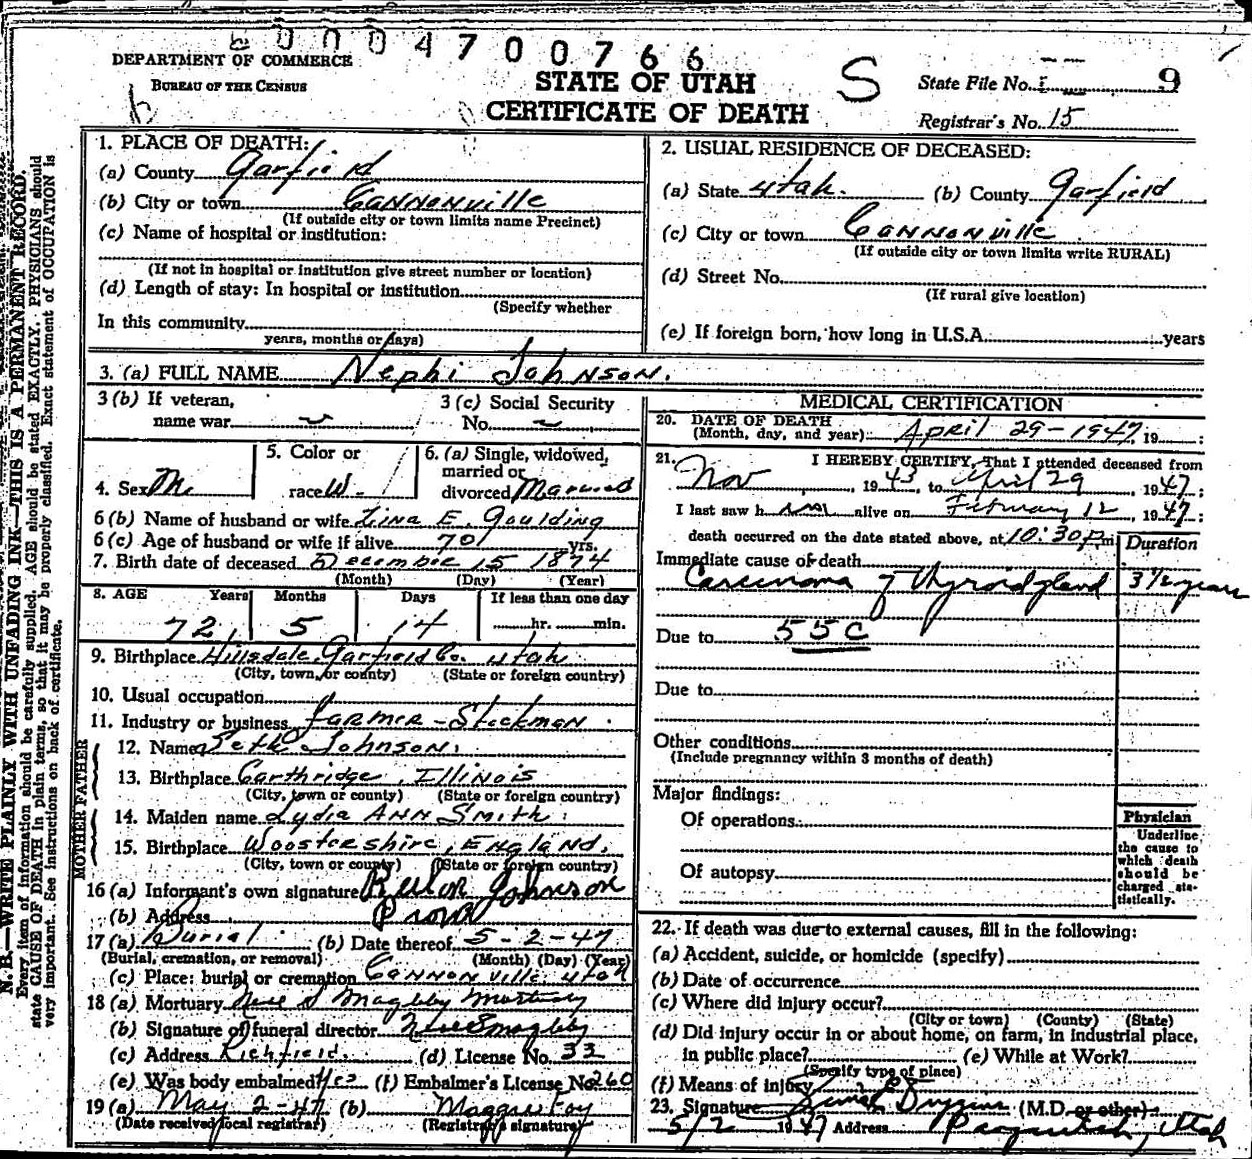 60004700766
DEPARTMENT OF COMMERCE
BUREAU OF THE CENSUS
STATE OF UTAH
CERTIFICATE OF DEATH
S
State File No. 9
Registrar's No. 15
N. B.—WRITE PLAINLY WITH UNFADING INK—THIS IS A PERMANENT RECORD.
Every item of information should be carefully supplied. AGE should be stated EXACTLY. PHYSICIANS should
state CAUSE OF DEATH in plain terms, so that it may be properly classified. Exact statement of OCCUPATION is
very important. See instructions on back of certificate.
1. PLACE OF DEATH:
(a) County Garfield
(b) City or town Cannonville
(If outside city or town limits name Precinct)
(c) Name of hospital or institution:
(If not in hospital or institution give street number or location)
(d) Length of stay: In hospital or institution
(Specify whether
In this community
years, months or days)
2. USUAL RESIDENCE OF DECEASED:
(a) State Utah. (b) County Garfield
(c) City or town Cannonville
(If outside city or town limits write RURAL)
(d) Street No.
(If rural give location)
(e) If foreign born, how long in U.S.A. years
3. (a) FULL NAME Nephi Johnson.
3 (b) If veteran,
name war
3 (c) Social Security
No.
4. Sex M.
5. Color or
race W.
6. (a) Single, widowed,
married or
divorced Married
6 (b) Name of husband or wife Zina E. Goulding
6 (c) Age of husband or wife if alive 70 yrs.
7. Birth date of deceased December 15 1874
(Month) (Day) (Year)
8. AGE Years Months Days If less than one day
72 5 14 hr. min.
9. Birthplace Hillsdale, Garfield Co. Utah
(City, town, or county) (State or foreign country)
10. Usual occupation
11. Industry or business Farmer - Stockman
FATHER
12. Name Seth Johnson.
13. Birthplace Carthridge, Illinois
(City, town or county) (State or foreign country)
MOTHER
14. Maiden name Lydia Ann Smith.
15. Birthplace Woostershire, England.
(City, town or county) (State or foreign country)
16 (a) Informant's own signature Johnson
(b) Address Provo
17 (a) Burial (b) Date thereof 5-2-47
(Burial, cremation, or removal) (Month) (Day) (Year)
(c) Place: burial or cremation Cannonville, Utah
18 (a) Mortuary Neal S Magleby Mortuary
(b) Signature of funeral director Neal S Magleby
(c) Address Richfield. (d) License No. 33
(e) Was body embalmed Yes (f) Embalmer's License No 260
19 (a) May 2-47 (b) Maggie Foy
(Date received local registrar) (Registrar's signature)
MEDICAL CERTIFICATION
20. DATE OF DEATH
(Month, day, and year): April 29-1947 19 ;
21. I HEREBY CERTIFY, That I attended deceased from
Nov , 1943, to April 29 , 1947;
I last saw h im alive on February 12 , 1947;
death occurred on the date stated above, at 10:30 P m
Duration
Immediate cause of death
Carcinoma of thyroid gland 3 1/2 years
Due to 55C
Due to
Other conditions
(Include pregnancy within 3 months of death)
Major findings:
Of operations
Of autopsy
Physician
Underline
the cause to
which death
should be
charged sta-
tistically.
22. If death was due to external causes, fill in the following:
(a) Accident, suicide, or homicide (specify)
(b) Date of occurrence
(c) Where did injury occur?
(City or town) (County) (State)
(d) Did injury occur in or about home, on farm, in industrial place,
in public place? (e) While at Work?
(Specify type of place)
(f) Means of injury
23. Signature (M.D. or other)
5/2 1947 Address Panguitch, Utah